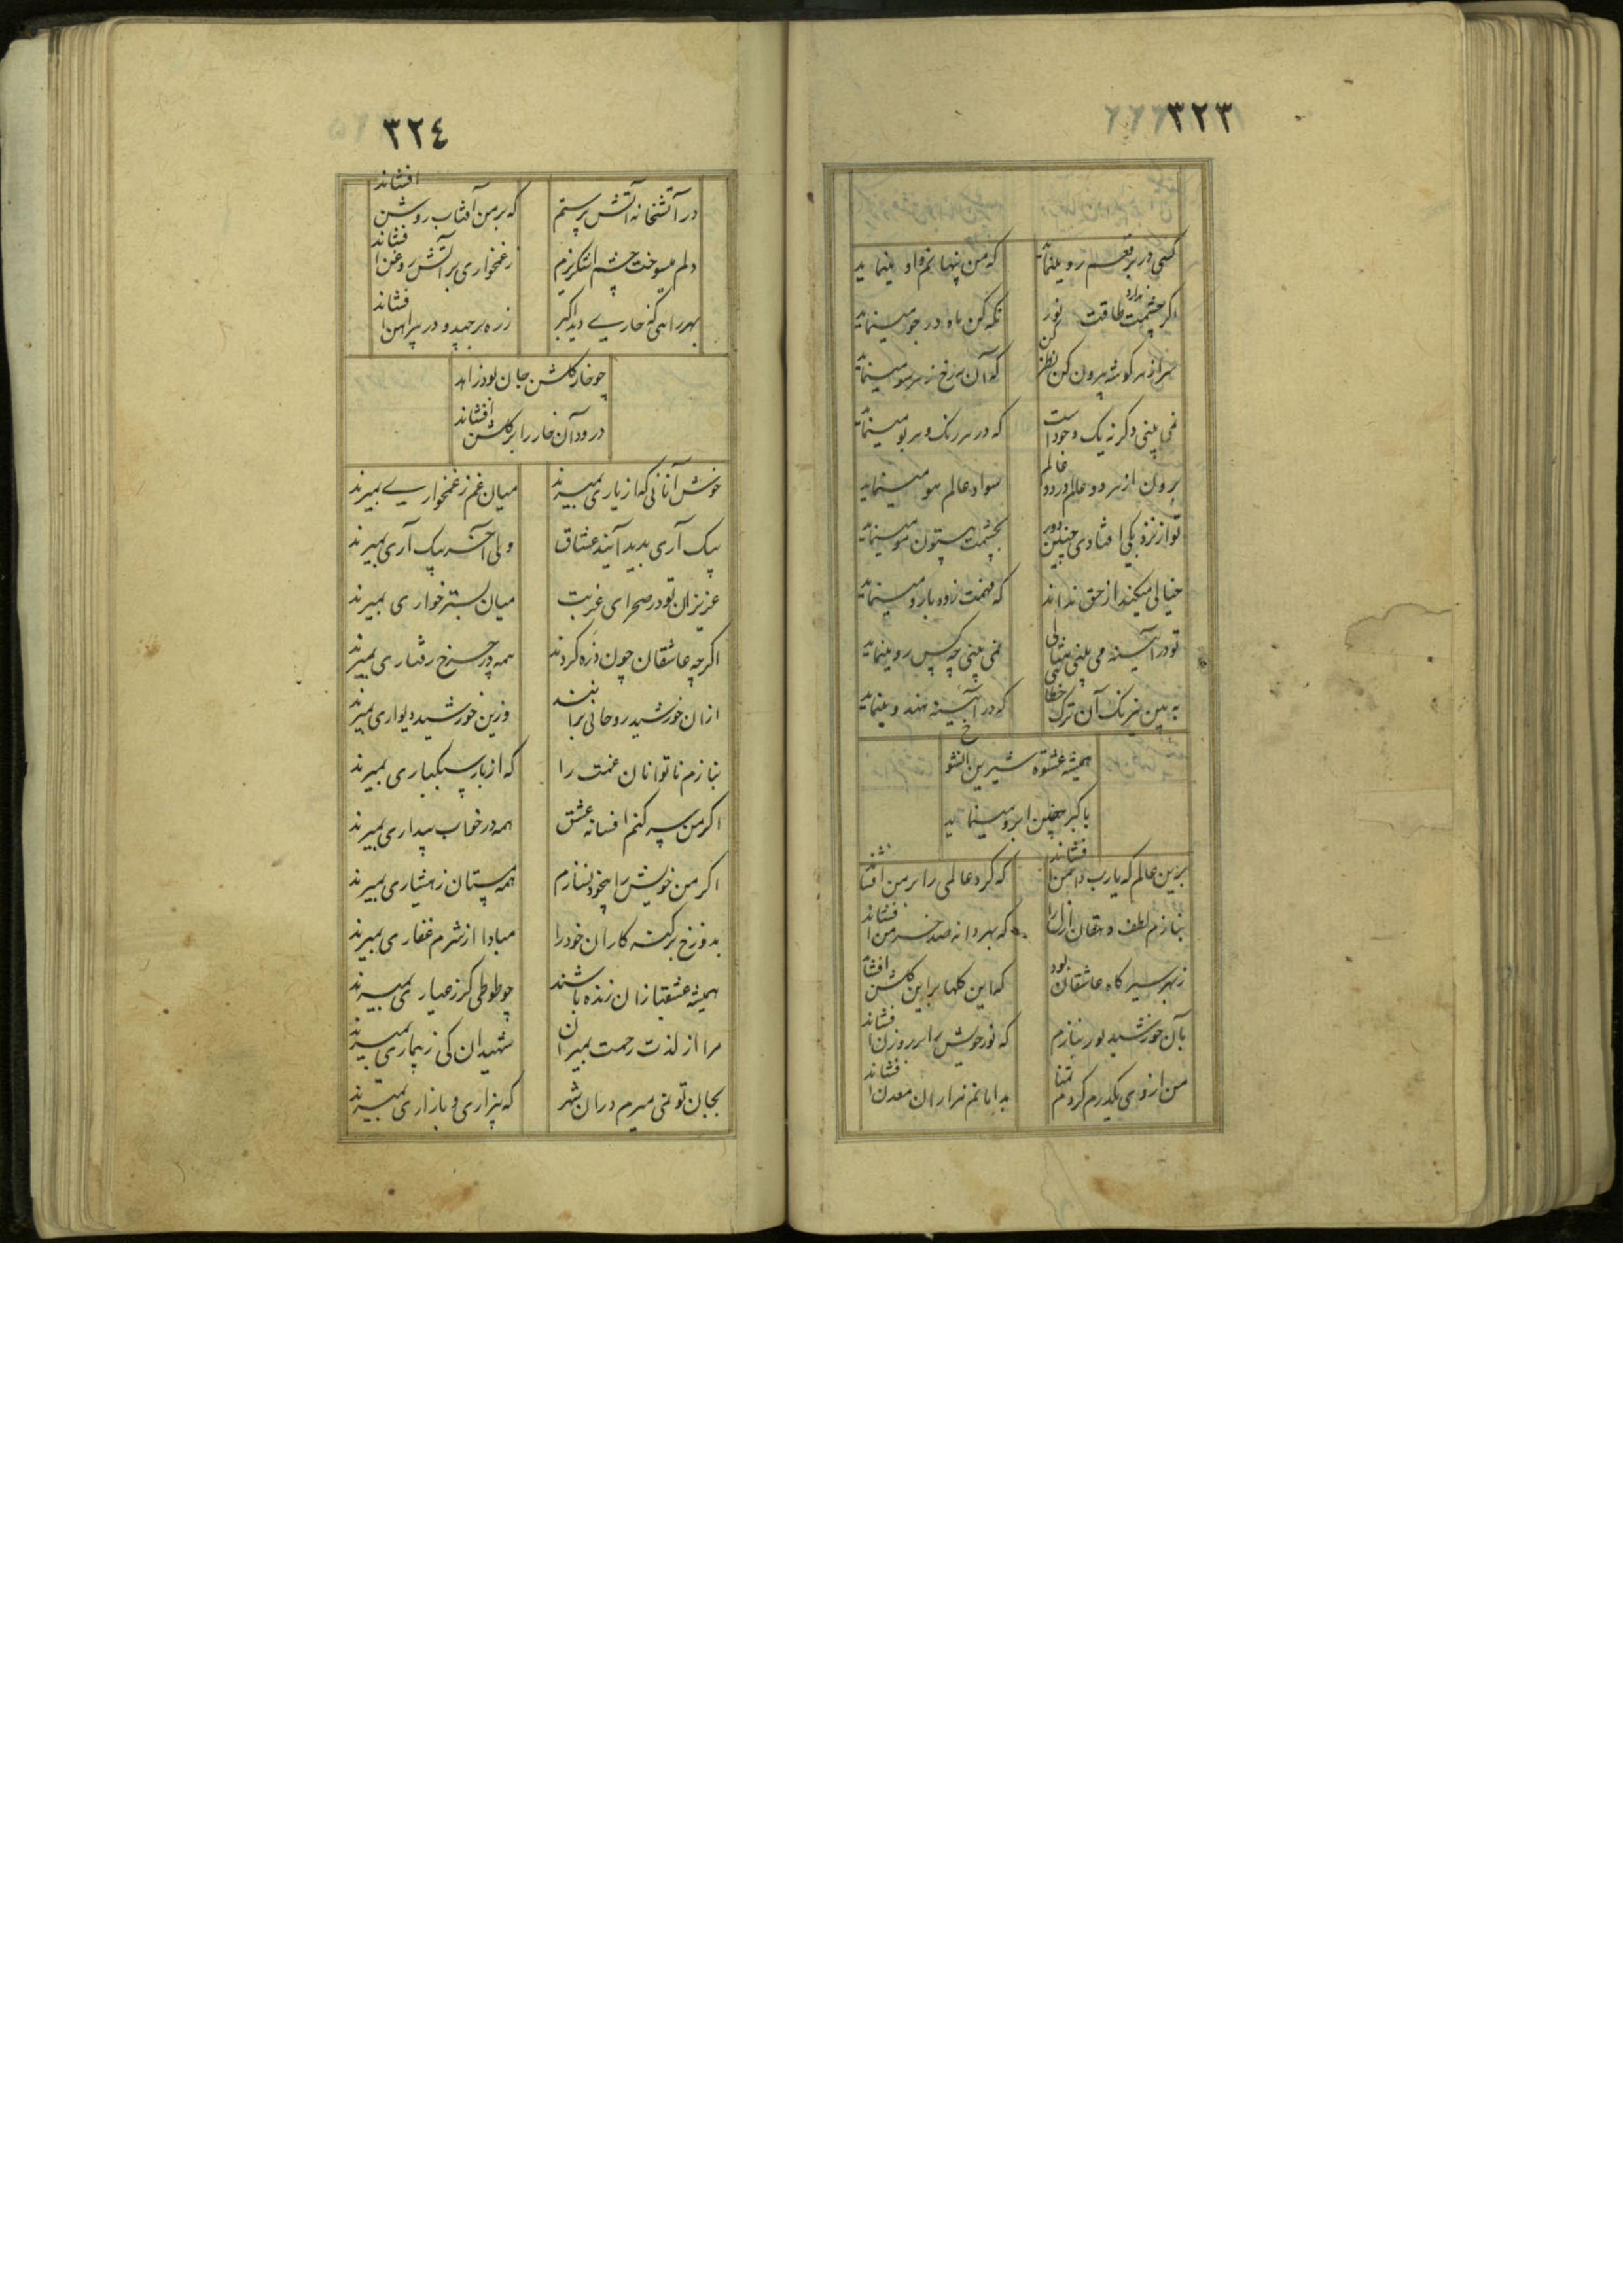 ۳۲۳
کسی در برقعم رو مینماید
که من پنهانم و او مینماید
اگر چشمت ندارد طاقت نور
نگه کن ماه در جو مینماید
سر از هر گوشه بیرون کن نظر کن
که آن مه رخ ز هر سو مینماید
نمی بینی دگر نه یک وجود است
که در هر رنگ و هر بو مینماید
برون از هر دو عالم در دو عالم
سواد عالم هو مینماید
تو از نزدیکی افتادی چنین دور
بچشمت بیستون مو مینماید
خیالی میکند از حق نداند
که فهمت زوده بارو مینماید
تو در آئینه می بینی مثالی
نمی بینی چه کس رو مینماید
به بین نیرنگ آن ترک خطائی
که در آئینه هندو مینماید
همیشه عشوه شیرین آن شوخ
باکبر همچین ابرو مینماید
برین عالم که یارب دامن افشاند
که گرد عالمی را بر من افشاند
بنازم لطف دهقان ازل را
که بهر دانه صد خرمن افشاند
ز بهر سیرگاه عاشقان بود
که این گلها براین گلشن افشاند
بآن خورشید لور بنازم
که نور خویش را بر روزن افشاند
من از وی یکدرم کردم تمنا
بدامانم هزاران معدن افشاند
۳۲٤
در آتشخانه آتش پرستم
که بر من آفتاب روشن افشاند
دلم میسوخت چشم اشکریزم
ز غمخواری بر آتش روغن افشاند
بهر راهی که خاری دید اکبر
ز ره برچید و در پیراهن افشاند
چو خار گلشن جان بود زاهد
درود آن خار را بر گلشن افشاند
خوش آنانی که از یاری بمیرند
میان غم ز غمخواری بمیرند
بیک آری بدید آیند عشاق
ولی آخر بیک آری بمیرند
عزیزان تو در صحرای غربت
میان بستر خواری بمیرند
اگرچه عاشقان چون ذره گردند
همه در چرخ رفتاری بمیرند
ازان خورشید روحانی برآیند
وزین خورشید دیواری بمیرند
بنازم ناتوانان غمت را
که از بار سبکباری بمیرند
اگر من سر کنم افسانه عشق
همه در خواب بیداری بمیرند
اگر من خویش را بیخود نسازم
همه مستان ز هشیاری بمیرند
بدوزخ بر گنه کاران خود را
مبادا از شرم غفاری بمیرند
همیشه عشقبازان زنده باشند
چو طوطی کز ز عیاری بمیرند
مرا از لذت رحمت بمیران
شهیدان کی ز بیماری بمیرند
بجان تو نمی میرم دران شهر
که بیزاری و بازاری بمیرند